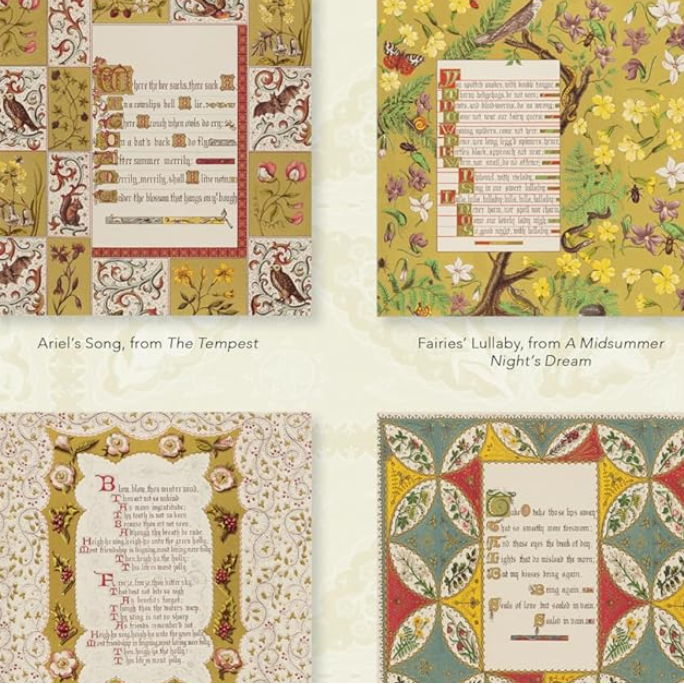 Where the bee sucks, there suck I,
In a cowslips bell I lie,
There I couch when owls do cry:
On a bat's back I do fly
After summer merrily:
Merrily, merrily, shall I live now,
Under the blossom that hangs on y bough
Ariel's Song, from The Tempest
You spotted snakes, with double tongue,
Thorny hedgehogs, be not seen;
Newts, and blind-worms, do no wrong;
Come not near our fairy queen.
Weaving spiders, come not here;
Hence, you long legg'd spinners, hence;
Beetles black, approach not near;
Worm, nor snail, do no offence.
Philomel, with melody,
Sing in our sweet lullaby;
Lulla, lulla, lullaby, lulla, lulla, lullaby;
Never harm, nor spell nor charm,
Come our lovely lady nigh;
So, good night, with lullaby.
Fairies' Lullaby, from A Midsummer
Night's Dream
Blow, blow, thou winter wind,
Thou art not so unkind
As man's ingratitude;
Thy tooth is not so keen
Because thou art not seen,
Although thy breath be rude.
Heigh ho, sing, heigh ho, unto the green holly:
Most friendship is feigning, most loving mere folly.
Then, heigh ho, the holly:
This life is most jolly.
Freeze, freeze, thou bitter sky,
That dost not bite so nigh
As benefits forgot;
Though thou the waters warp,
Thy sting is not so sharp
As friends remember'd not.
Heigh ho, sing, heigh ho, unto the green holly:
Most friendship is feigning, most loving mere folly.
Then, heigh ho, the holly:
This life is most jolly.
Take O take those lips away,
That so sweetly were foresworn;
And those eyes the break of day,
Lights that do mislead the morn:
But my kisses bring again,
Bring again,
Seals of love but sealed in vain,
Sealed in vain.